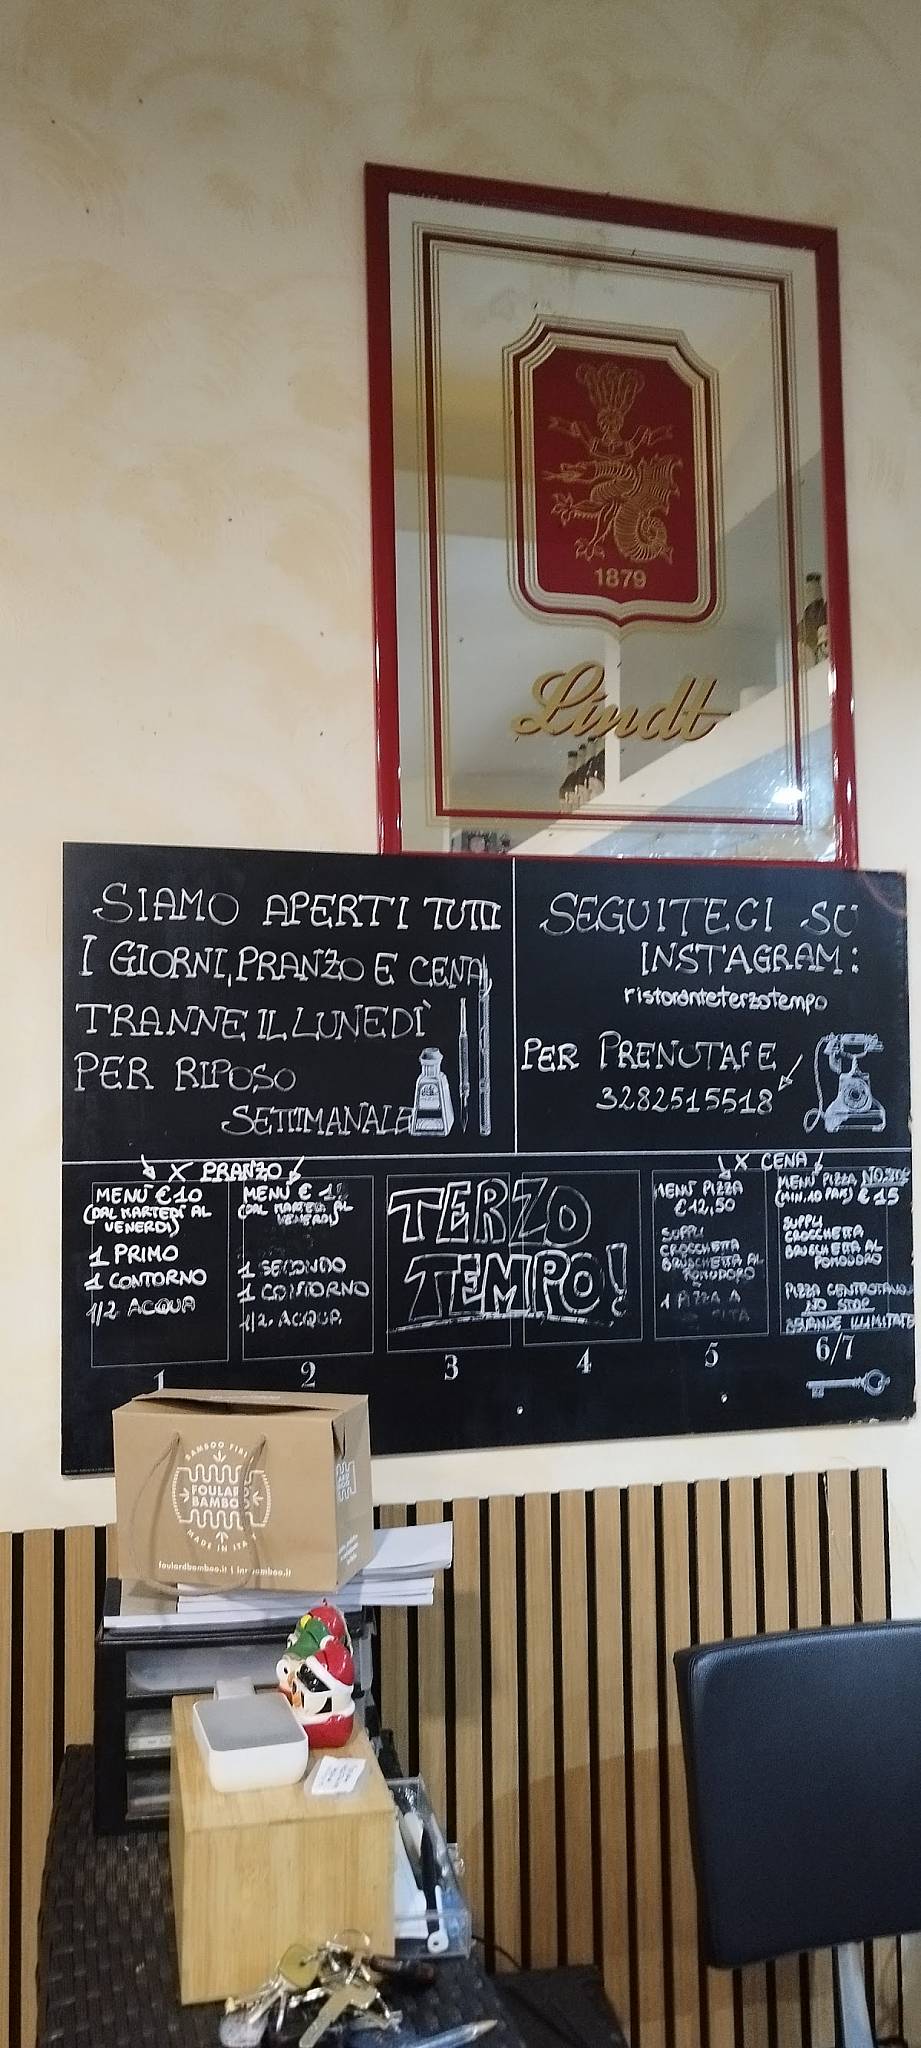 1879
Lindt
SIAMO APERTI TUTTI
I GIORNI, PRANZO E CENA,
TRANNE IL LUNEDÌ
PER RIPOSO
SETTIMANALE
SEGUITECI SU
INSTAGRAM:
ristoranteterzotempo
PER PRENOTARE
3282515518
X PRANZO
MENÙ €10
(DAL MARTEDÌ AL
VENERDÌ)
1 PRIMO
1 CONTORNO
1/2 ACQUA
1
MENÙ €
(DAL MARTEDÌ AL
VENERDÌ)
1 SECONDO
1 CONTORNO
1/2 ACQUA
2
TERZO
TEMPO!
3
4
X CENA
MENÙ PIZZA
€12,50
SUPPLÌ
CROCCHETTA
BRUSCHETTA AL
POMODORO
1 PIZZA A
5
MENÙ PIZZA NO STOP
(MIN. 10 PAX) € 15
SUPPLÌ
CROCCHETTA
BRUSCHETTA AL
POMODORO
PIZZA CENTROTAVOLA
NO STOP
BEVANDE ILLIMITATE
6/7
FOULAR
BAMBOO
MADE IN ITA
foulardbamboo.it